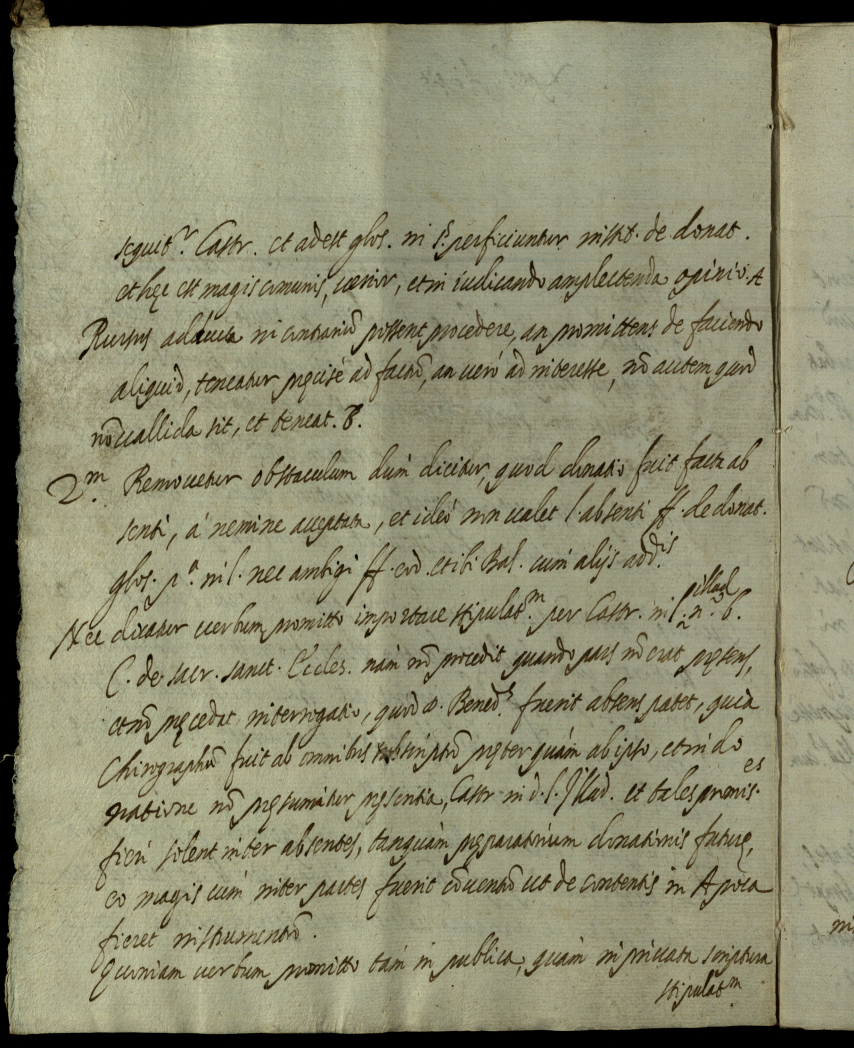 sequit.r Castr. et adest glos. in §. perficiuntur instit. de donat.
et hęc est magis comunis, uerior, et in iudicando amplectenda opinio. A
Rursus adducta in contrariũ possent procedere, an promittens de faciendo
aliquid, teneatur pręcisè ad factũ, an uerò ad interesse, nõ autem quod
nõ uallida sit, et teneat. B.
2.m Remouetur obstaculum dum dicitur, quod donatio fuit facta ab
senti, à nemine acceptata, et ideò non ualet l. absenti ff. de donat.
glos. p.a in l. nec ambigi ff. eod. et ibi Bal. cum alijs add.is
Nec dicatur uerbum promitto importare stipulat.m per Castr. in l. illud n.o 6.
C. de sacr. sanct. Eccles. nam nõ procedit quando pars nõ erat pręsens,
et nõ pręcedat interrogatio, quod D. Bened.s fuerit absens patet, quia
Chirographũ fuit ab omnibus subscriptũ pręter quàm ab ipso, et in do
natione nõ pręsumitur pręsentia, Castr. in d. l. Illud. et tales promis.es
fieri solent inter absentes, tanquàm pręparatorium donationis futurę,
eo magis cum inter partes fuerit cõuentũ ut de contentis in Apoca
fieret instrumentũ.
Quoniam uerbum promitto tàm in publica, quàm in priuata scriptura
stipulat.m